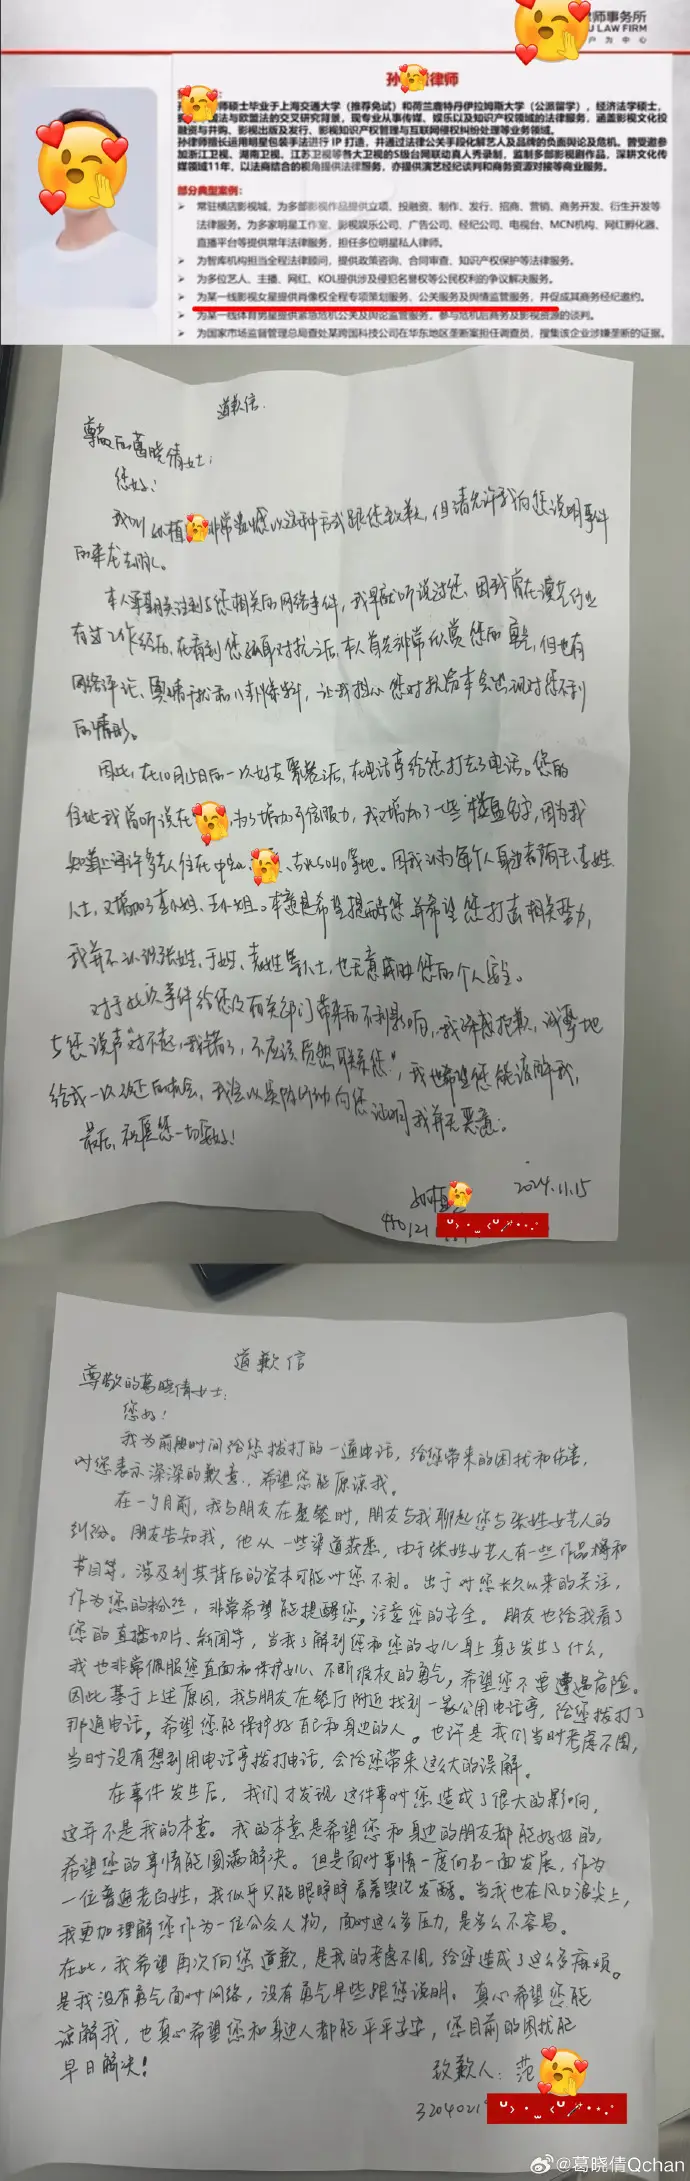 律师事务所
U LAW FIRM
户 为 中 心
孙 律师
孙 师硕士毕业于上海交通大学（推荐免试）和荷兰鹿特丹伊拉姆斯大学（公派留学），经济法学硕士，
法与欧盟法的交叉研究背景，现专业从事传媒、娱乐以及知识产权领域的法律服务，涵盖影视文化投
融资与并购、影视出版及发行、影视知识产权管理与互联网侵权纠纷处理等业务领域。
孙律师擅长运用明星包装手法进行 IP 打造，并通过法律公关手段化解艺人及品牌的负面舆论及危机。曾受邀参
加浙江卫视、湖南卫视、江苏卫视等各大卫视的S级台网联动真人秀录制，监制多部影视剧作品，深耕文化传
媒领域11年，以法商结合的视角提供法律服务，亦提供演艺经纪谈判和商务资源对接等商业服务。
部分典型案例：
➢ 常驻横店影视城，为多部影视作品提供立项、投融资、制作、发行、招商、营销、商务开发、衍生开发等
法律服务。为多家明星工作室、影视娱乐公司、广告公司、经纪公司、电视台、MCN机构、网红孵化器、
直播平台等提供常年法律服务，担任多位明星私人律师。
➢ 为智库机构担当全程法律顾问，提供政策咨询、合同审查、知识产权保护等法律服务。
➢ 为多位艺人、主播、网红、KOL提供涉及侵犯名誉权等公民权利的争议解决服务。
➢ 为某一线影视女星提供肖像权全程专项策划服务、公关服务及舆情监管服务，并促成其商务经纪邀约。
➢ 为某一线体育男星提供紧急危机公关及舆论监管服务，参与危机后商务及影视资源的谈判。
➢ 为国家市场监督管理总局查处某跨国科技公司在华东地区垄断案担任调查员，搜集该企业涉嫌垄断的证据。
道歉信.
尊敬的葛晓倩女士：
您好！
我叫孙植 非常抱歉以这种方式跟您致歉，但请允许我向您说明事件
的来龙去脉。
本人早期关注到与您相关的网络事件，我早就听说过您，因我曾在演艺行业
有过工作经历，在看到您 对抗之后，本人首先非常欣赏您的勇气，但也有
网络评论、舆情干扰和 ，让我担心您对抗资本会出现对您不利
的情形。
因此，在10月15日的一次好友聚餐之后，在电话亭给您打去了电话。您的
住址我曾听说在 ，为了增加可信服力，我又增加了一些"楼盘名字，因为我
知道上海许多艺人住在中 、 等地。因我认为每个人身边都有王、李姓
人士，又增加了李小姐、王小姐。本意是希望提醒您并希望您打击相关势力，
我并不认识张姓、于姓、袁姓等人士，也无意威胁您的个人安全。
对于此次事件给您及有关部门带来的不利影响，我深感抱歉，诚挚地
与您说声"对不起，我错了，不应该贸然联系您"，我也希望您能谅解我，
给我一次改过的机会，我会以实际行动向您证明我并无恶意。
最后，祝愿您一切安好！
孙植
2024.11.15
450121
道歉信
尊敬的葛晓倩女士：
您好！
我为前段时间给您拨打的一通电话，给您带来的困扰和伤害，
对您表示深深的歉意，希望您能原谅我。
在一个月前，我与朋友在聚餐时，朋友与我聊起您与张姓女艺人的
纠纷。朋友告知我，他从一些渠道获悉，由于张姓女艺人有一些作品播和
节目等，涉及到其背后的资本可能对您不利。出于对您长久以来的关注，
作为您的粉丝，非常希望能提醒您，注意您的安全。朋友也给我看了
您的直播切片、新闻等，当我了解到您和您的女儿身上真正发生了什么，
我也非常佩服您直面和保护女儿、不断维权的勇气，希望您不要遭遇危险。
因此基于上述原因，我与朋友在餐厅附近找到一家公用电话亭，给您拨打了
那通电话，希望您能保护好自己和身边的人。也许是我们当时考虑不周，
当时没有想到用电话亭拨打电话，会给您带来这么大的误解。
在事件发生后，我们才发现这件事对您造成了很大的影响，
这并不是我的本意。我的本意是希望您和身边的朋友都能好好的，
希望您的事情能圆满解决。但是面对事情一度向另一面发展，作为
一位普通老百姓，我似乎只能眼睁睁看着舆论发酵。当我也在风口浪尖上，
我更加理解您作为一位公众人物，面对这么多压力，是多么不容易。
在此，我希望再次向您道歉，是我的考虑不周，给您造成了这么多麻烦。
是我没有勇气面对网络，没有勇气早些跟您说明。真心希望您能
谅解我，也真心希望您和身边人都能平平安安，您目前的困扰能
早日解决！
致歉人：范
3204021
@葛晓倩Qchan